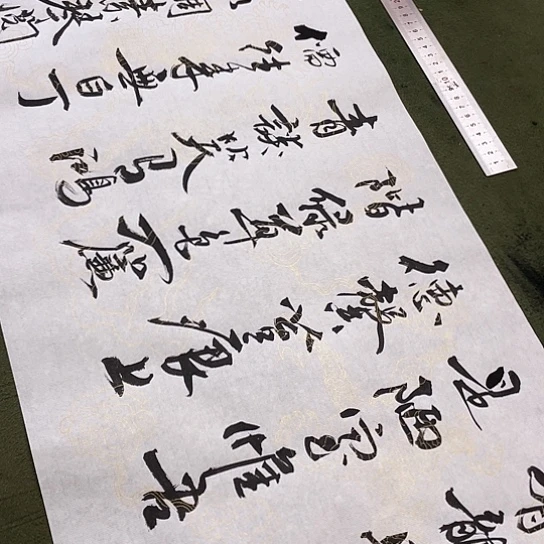 有龍
是陋室惟吾
德馨苔痕上
階綠草色入簾
青談笑有鴻
儒往來無白丁
調素琴閱